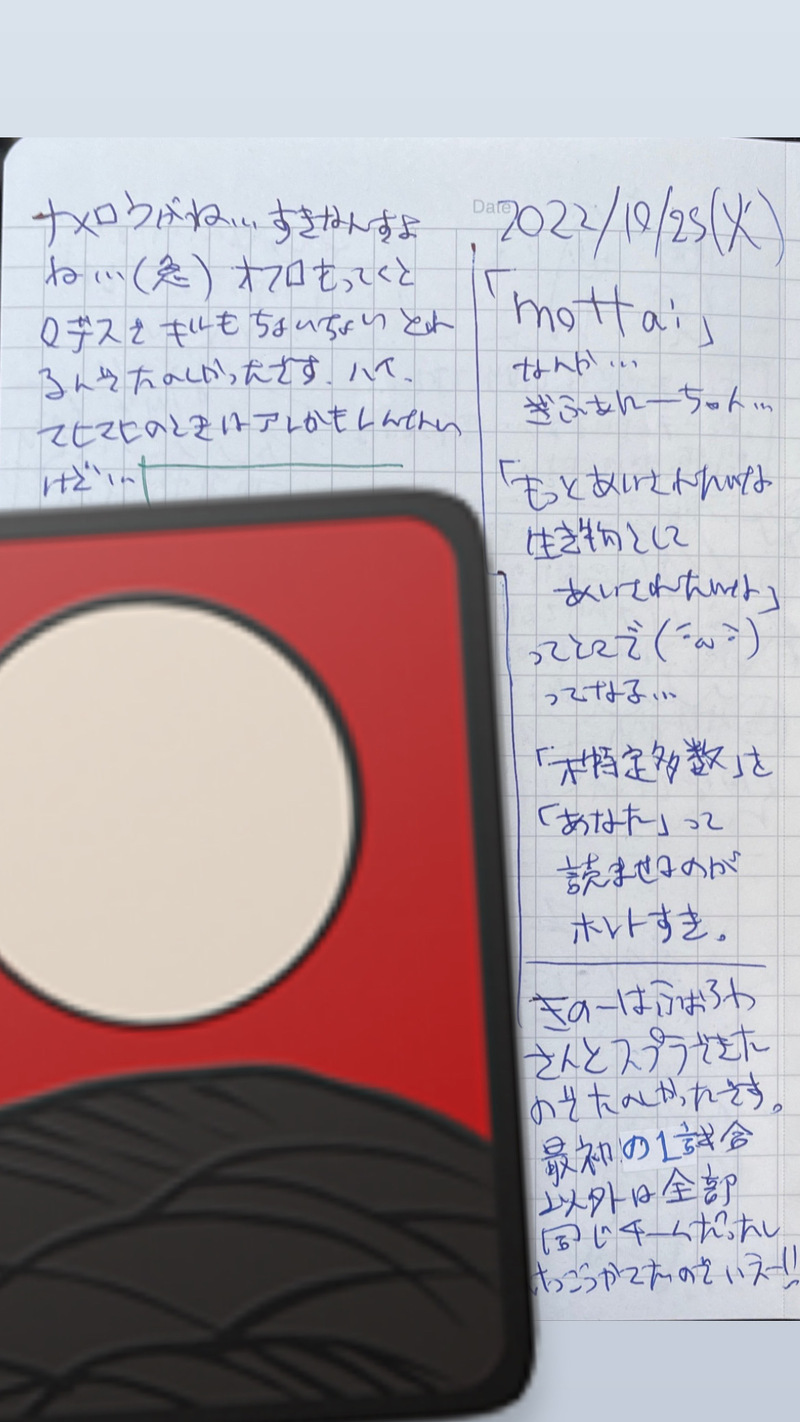 Date 2022/10/25(火)
「mottai」
なんか…
ぎふあにーちゃん…
「もっとあいされたいな
生き物として
あいされたいよ」
ってとこで(ﾐ´ω`ﾐ)
ってなる…
「不特定多数」を
「あなた」って
読ませるのが
ホントすき。
きのーはふぉろわ
さんとスプラできた
のでたのしかったです。
最初の1試合
以外は全部
同じチームだったし
けっこうかてたのでいえー!!
ナメロウがね… すきなんすよ
ね…(急) オフロもってくと
ロデスでキルもちょいちょいとれ
るんでたのしかったです。ハイ。
マヒマヒのときはアレかもしんせんい
けど…